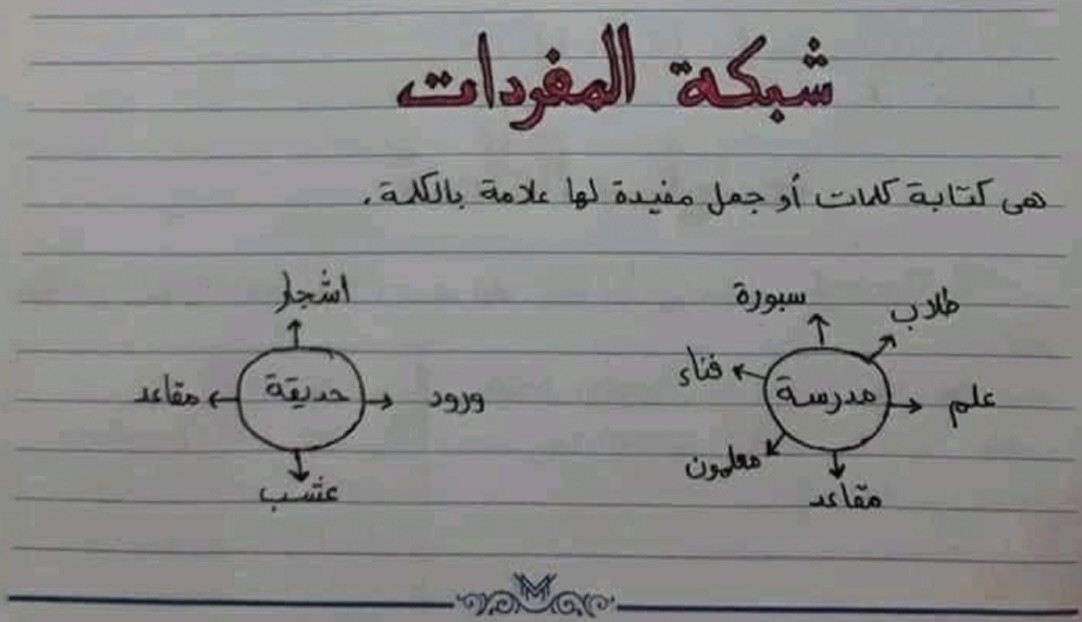 شبكة المفردات
هى كتابة كلمات أو جمل مفيدة لها علامة بالكلمة.
سبورة
طلاب
فناء
مدرسة
علم
معلمون
مقاعد
اشجار
مقاعد
حديقة
ورود
عشب